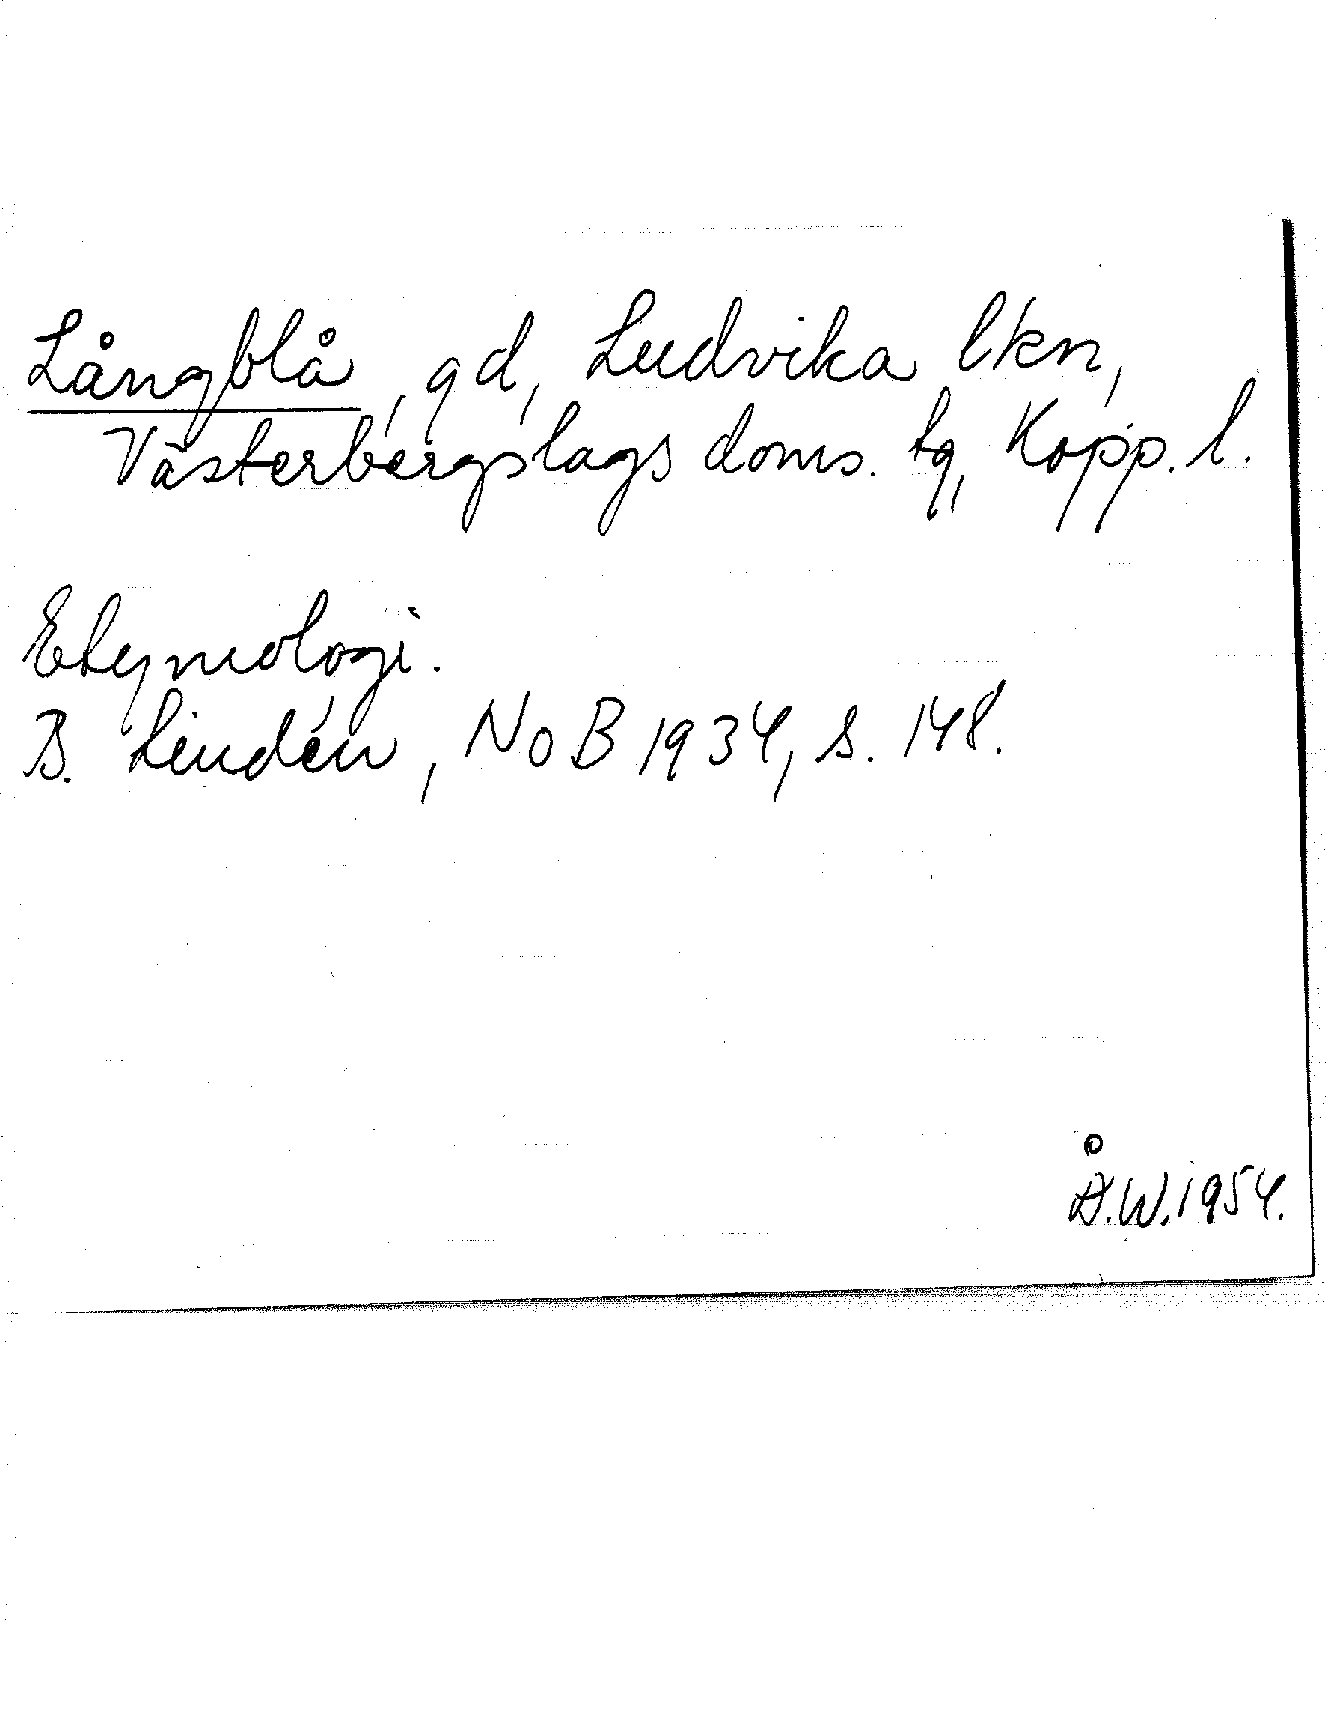 Långblå, gd, Ludvika lkn,
Västerbergslags doms. tg, Kopp. l.
Etymologi.
B. Lindén, NoB 1934, s. 148.
Å.W. 1954.